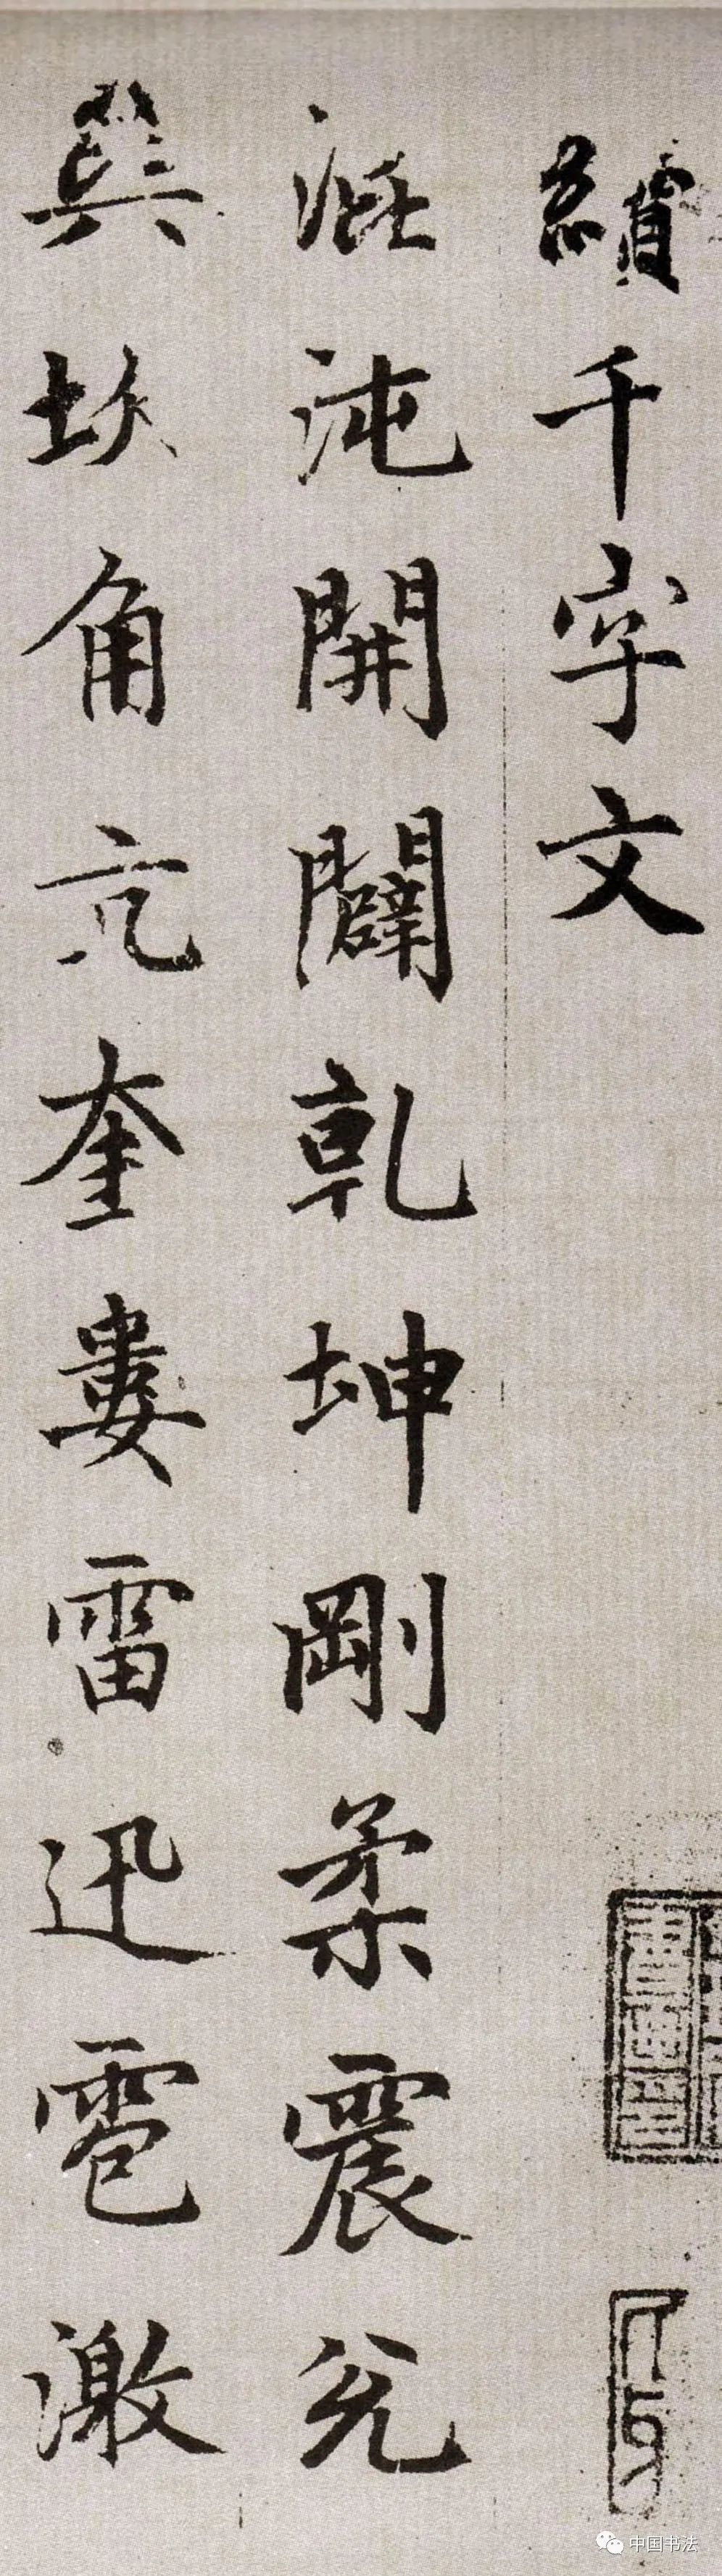 續千字文
混沌開闢乾坤剛柔震兊
巽坎角亢奎婁雷迅雹激
中国书法